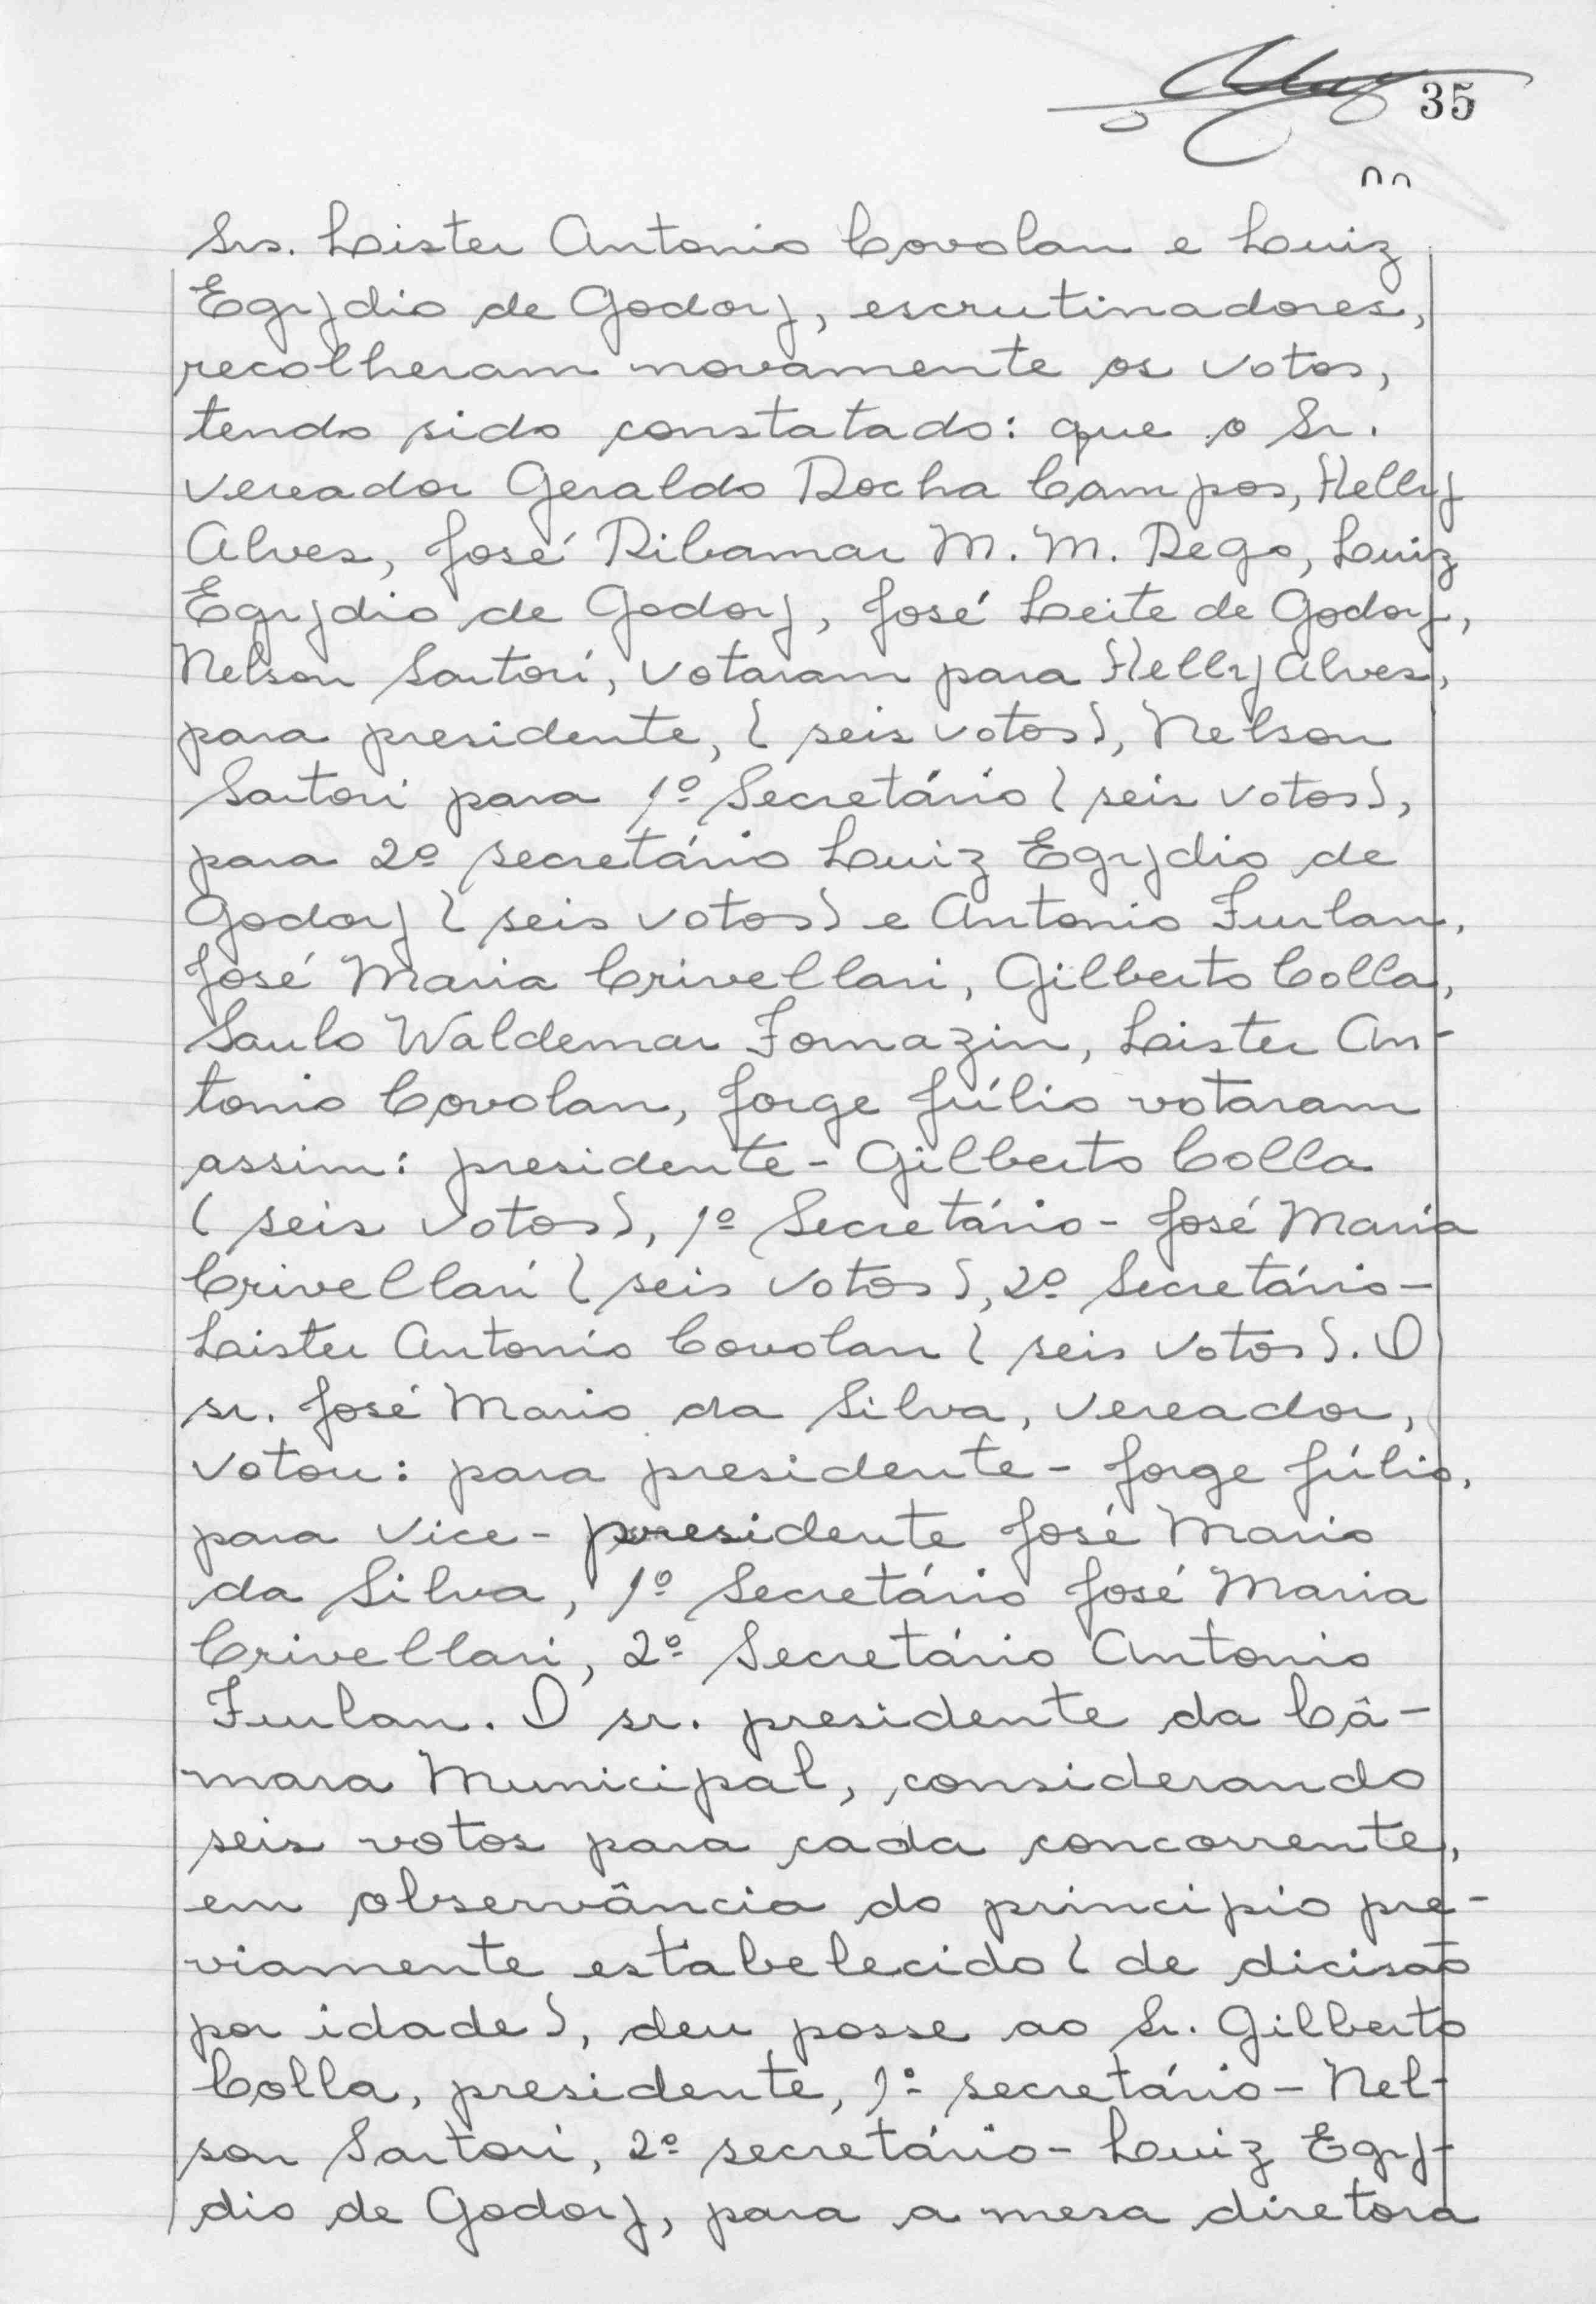 35
Srs. Lister Antonio Covolan e Luiz
Egydio de Godoy, escrutinadores,
recolheram novamente os votos,
tendo sido constatado: que o Sr.
vereador Geraldo Rocha Campos, Helly
Alves, José Ribamar M. M. Rego, Luiz
Egydio de Godoy, José Leite de Godoy,
Nelson Sartori, votaram para Helly Alves,
para presidente, (seis votos), Nelson
Sartori para 1º Secretário (seis votos),
para 2º secretário Luiz Egydio de
Godoy (seis votos) e Antonio Furlan,
José Maria Crivellari, Gilberto Colla,
Saulo Waldemar Fornazin, Lister An-
tonio Covolan, Jorge Júlio votaram
assim: presidente - Gilberto Colla
(seis votos), 1º Secretário - José Maria
Crivellari (seis votos), 2º Secretário -
Lister Antonio Covolan (seis votos). O
sr. José Mario da Silva, vereador,
votou: para presidente - Jorge Júlio,
para vice-presidente José Mario
da Silva, 1º Secretário José Maria
Crivellari, 2º Secretário Antonio
Furlan. O sr. presidente da Câ-
mara Municipal, considerando
seis votos para cada concorrente,
em observância do principio pre-
viamente estabelecido (de dicisão
por idade), deu posse ao Sr. Gilberto
Colla, presidente, 1º secretário - Nel-
son Sartori, 2º secretário - Luiz Egy-
dio de Godoy, para a mesa diretora